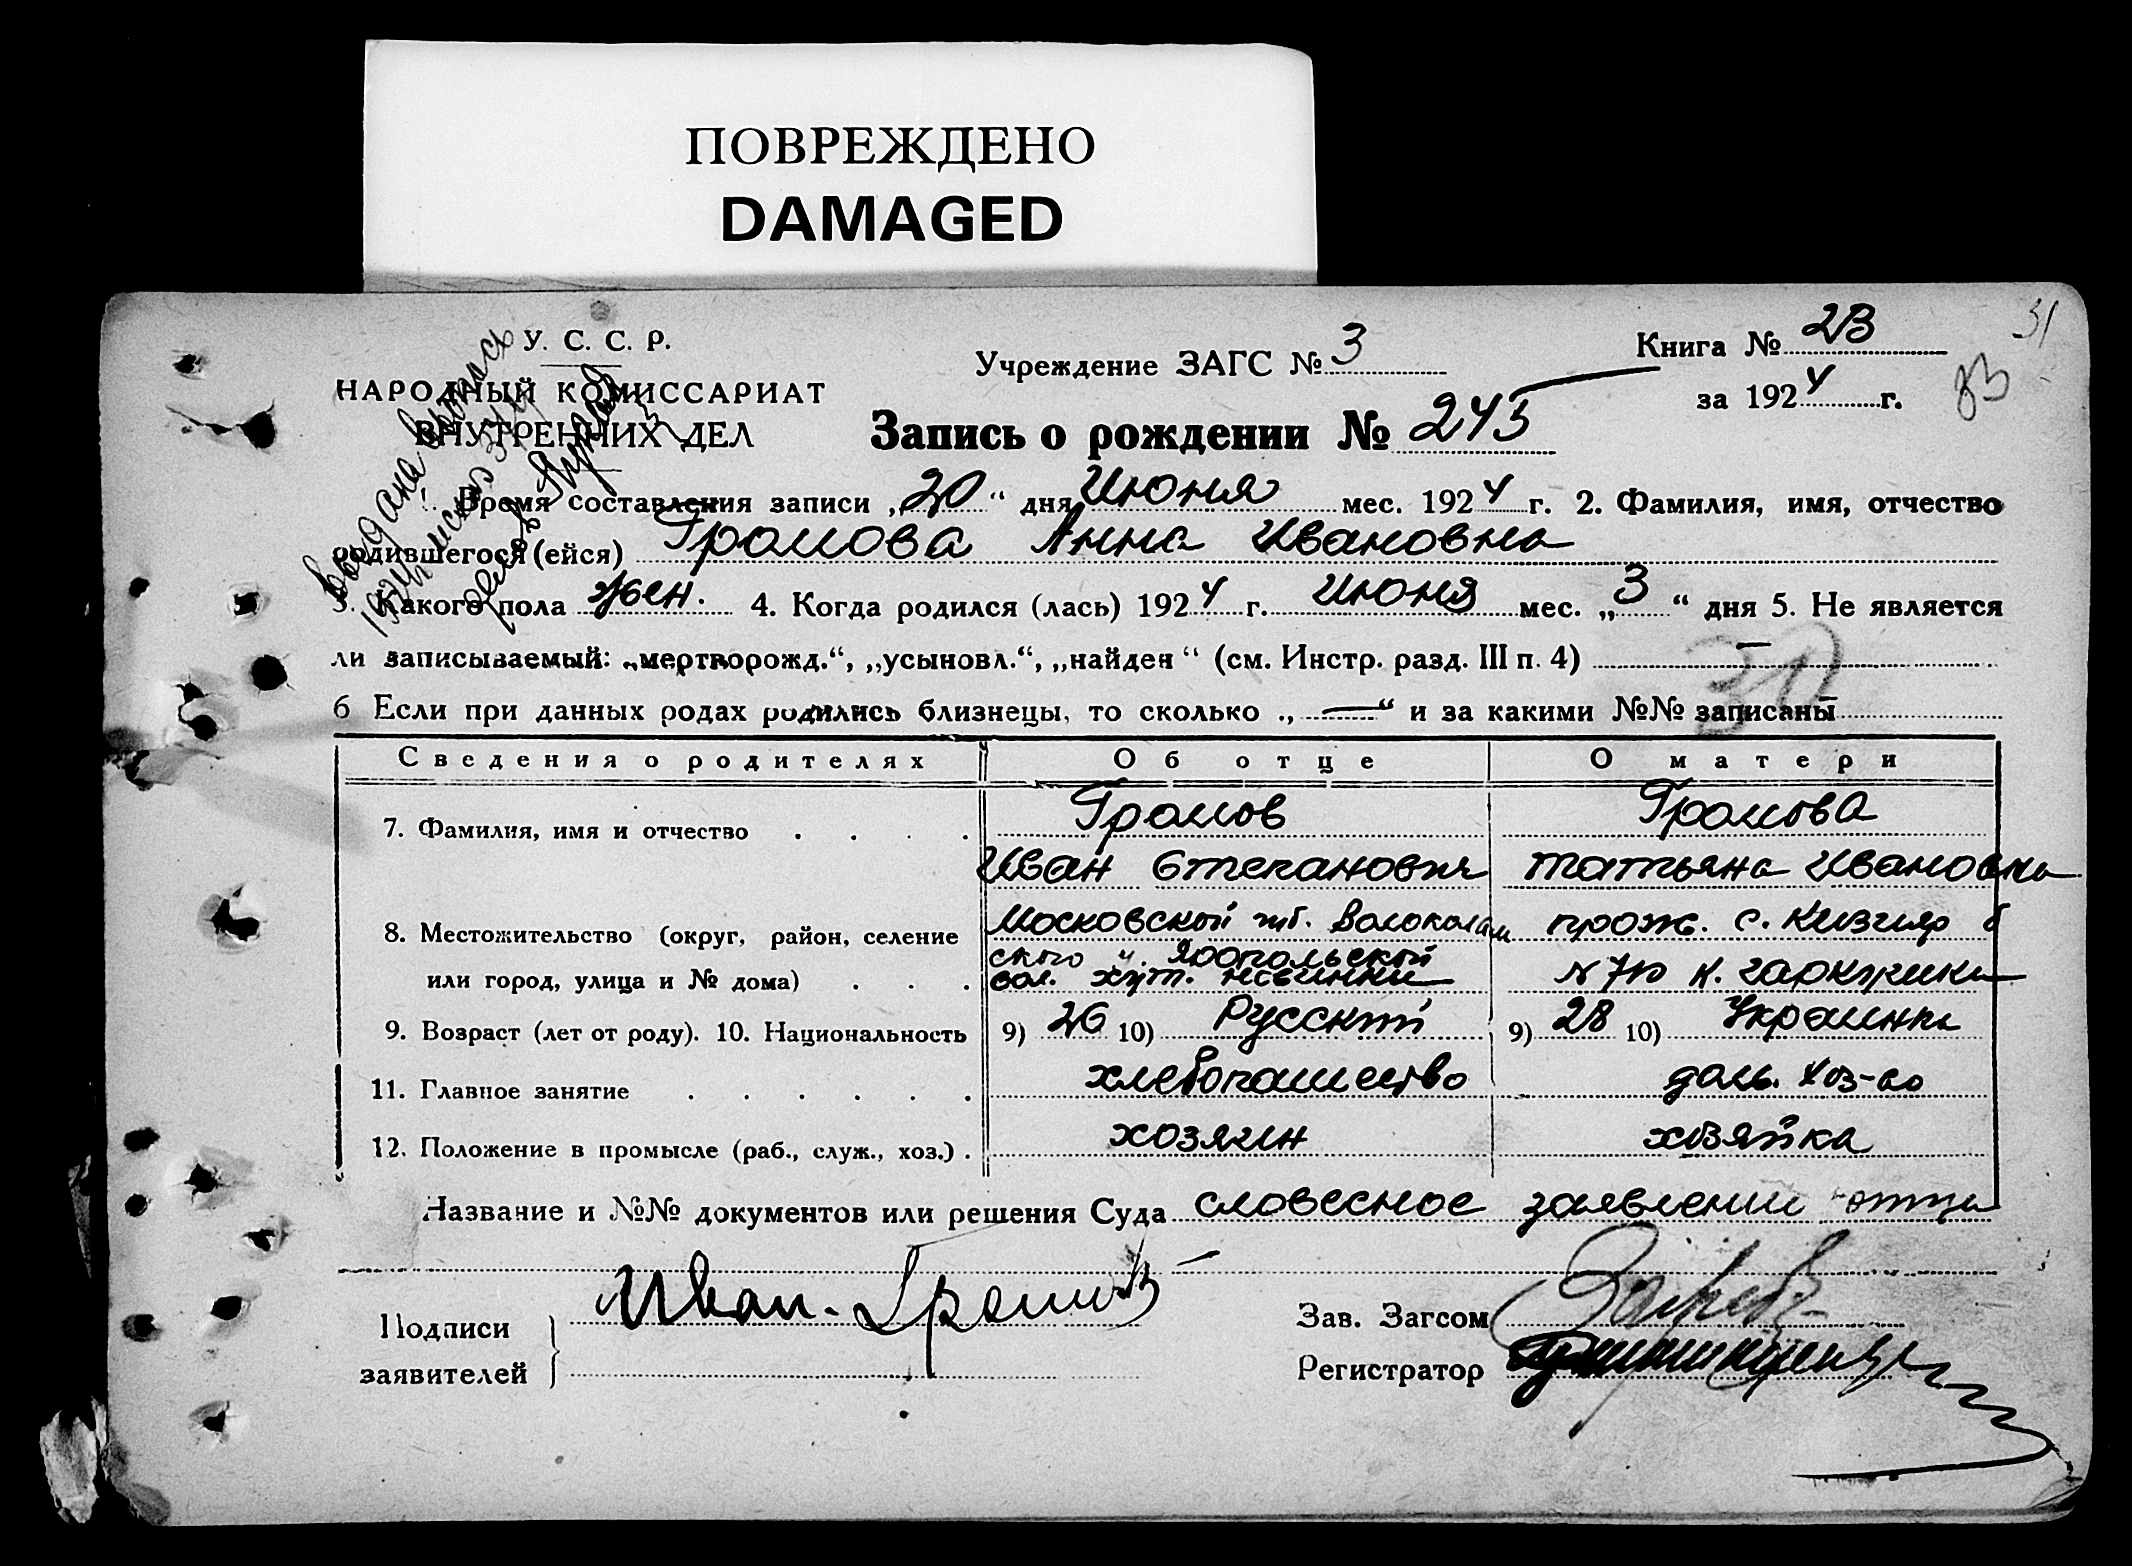 ПОВРЕЖДЕНО
DAMAGED
31
У. С. С. Р.
НАРОДНЫЙ КОМИССАРИАТ
ВНУТРЕННИХ ДЕЛ
Учреждение ЗАГС № 3
Книга № 2В
за 1924 г.
83
Запись о рождении № 245
Выдана выпись
1. Время составления записи „20“ дня Июня мес. 1924 г. 2. Фамилия, имя, отчество
родившегося (ейся) Громова Анна Ивановна
3. Какого пола жен. 4. Когда родился (лась) 1924 г. Июня мес. „3“ дня 5. Не является
ли записываемый: „мертворожд.“, „усыновл.“, „найден“ (см. Инстр. разд. III п. 4) —
6 Если при данных родах родились близнецы, то сколько „—“ и за какими №№ записаны
Сведения о родителях Об отце О матери
7. Фамилия, имя и отчество Громов Громова
Иван Степанович Татьяна Ивановна
8. Местожительство (округ, район, селение Московской губ. Волоколам прож. с.
ского у. Яропольской
или город, улица и № дома) вол. хут.
9. Возраст (лет от роду). 10. Национальность 9) 26 10) Русский 9) 28 10) Украинка
11. Главное занятие хлебопашество дом. хоз-во
12. Положение в промысле (раб., служ., хоз.) хозяин хозяйка
Название и №№ документов или решения Суда словесное заявление отца
Подписи
заявителей
Иван Громов
Зав. Загсом
Регистратор